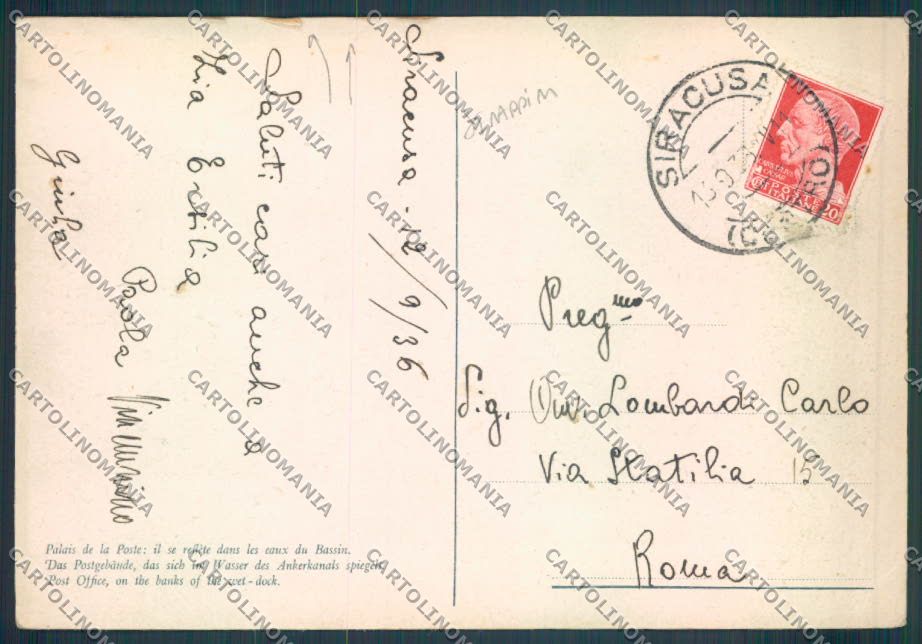 Siracusa. 12/9/36
Saluti cari anche a
Zia Ersilia
Paola
Giulia
SIRACUSA
POSTE
ITALIANE 20
Preg.mo
Sig. Lombardi Carlo
Via Statilia 15
Roma
Palais de la Poste: il se reflète dans les eaux du Bassin.
Das Postgebäude, das sich im Wasser des Ankerkanals spiegelt.
Post Office, on the banks of the wet-dock.
CARTOLINOMANIA